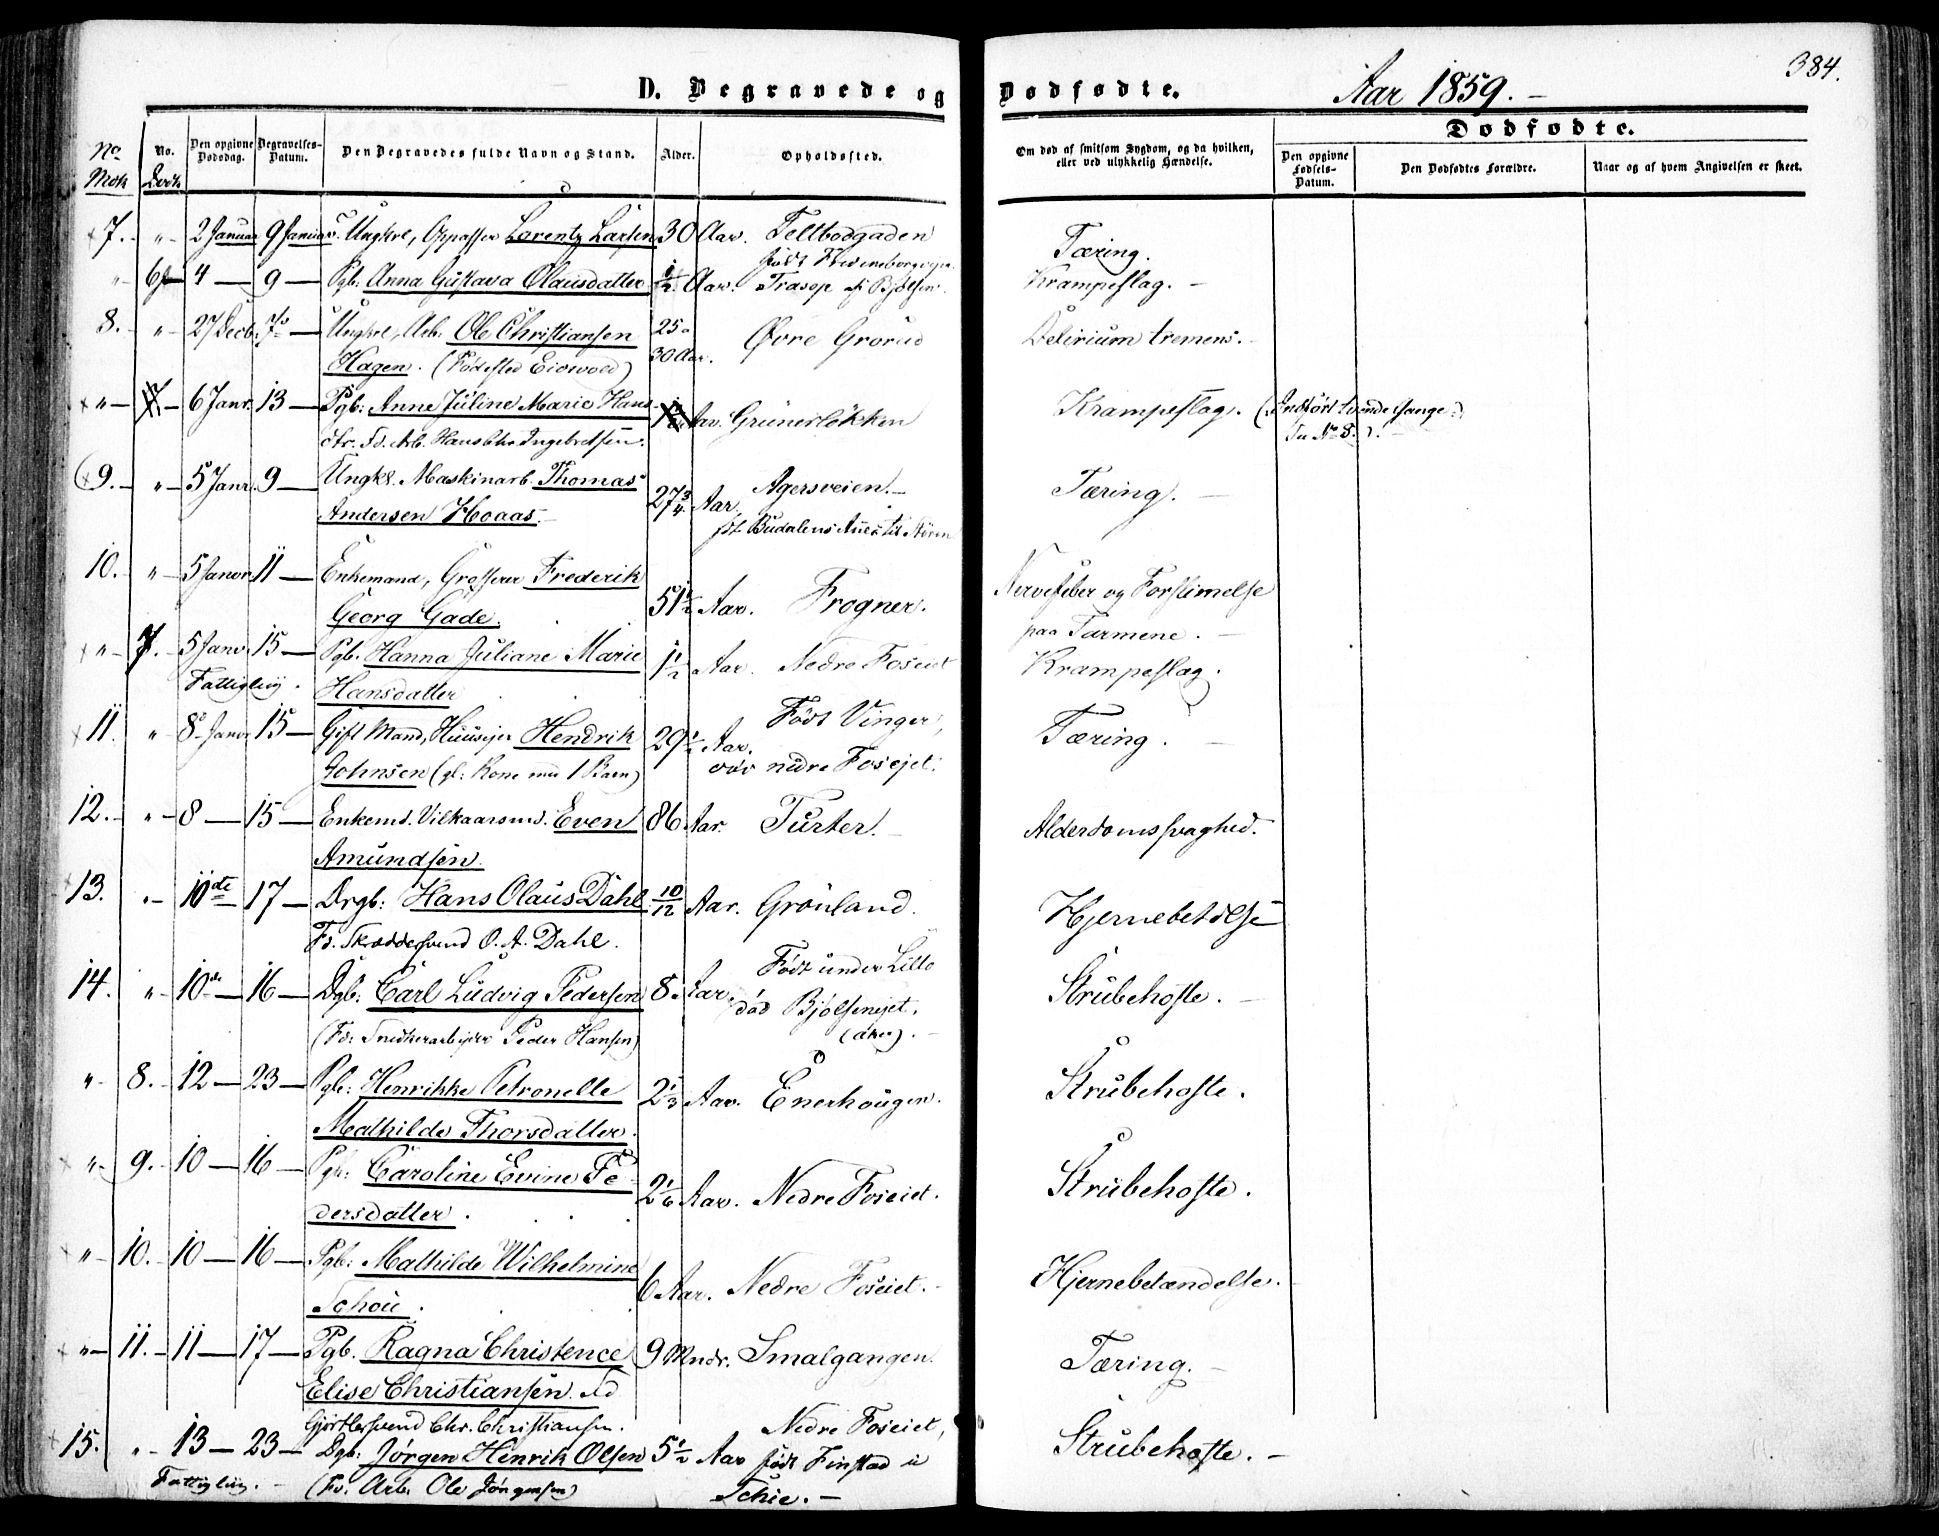 384.
D. Begravede og Dødfødte. Aar 1859. –
Dødfødte.
No Mck. | No. Qvck | Den opgivne Dødsdag. | Begravelses-Datum. | Den Begravedes fulde Navn og Stand. | Alder. | Opholdssted. | Om død af smitsom Sygdom, og da hvilken, eller ved ulykkelig Hændelse. | Den opgivne Fødsels-Datum. | Den Dødfødtes Forældre. | Naar og af hvem Angivelsen er skeet.
7. – " – 2 Januar 9 Januar. Ungkrl, Oppasser Lorentz Larsen 30 Aar. Teltbodgaden Tæring.
født Fredensborgveien
" 6 4 — 9 — Pgb: Anna Gustava Olausdatter 1/2 Aar. Trasop Bjølsen. Krampeslag. –
8. – " – 27 Decb. 7 — Ungkrl, Arb. Ole Christiansen 25 a Øvre Grorud Delirium tremens. –
Hagen. (Fødested Eidsvold) 30 Aar.
" – 7 – 6 Janr. 13 — Pgb: Anne Juline Marie Hans- Aar. Grünerløkken Krampeslag. (Anført tvende Gange.
dtr. Fd. Arb. Hans Ingebretsen. See No 8.). –
9. – " – 5 Janr. 9 — Ungkl. Maskinarb. Thomas Agersveien. – Tæring. –
Andersen Hoaas. – 27 3/4 Aar.
fdt Budalens Anex til Støren
10. – " – 5 Janvr 11 — Enkemand, Grosserer Frederik Nervefeber og Forslimelse
Georg Gade. 51 1/2 Aar. Frogner. paa Tarmene. –
" – 7. – 5 Janv. 15 — Pgb. Hanna Juliane Marie 1 1/2 Aar. Nedre Foseiet Krampeslag.
Fattiglig. Hansdatter
11. " 8 Janv. 15 — Gift Mand, Huusejer Hendrik 29 1/2 Aar. Født Vinger, Tæring. –
Johnsen (gl: Kone med 1 Barn) død nedre Foseiet.
12. – " – 8 — 15 — Enkemd. Vilkaarsmd. Even 86 Aar. Turter. – Alderdomssvaghed.
Amundsen.
13. " – 10de 17 — Drgb: Hans Olaus Dahl 10/12 Aar. Grønland. Hjernebetdlse
Fd. Skræddersvend O. A. Dahl.
14. " – 10de — 16 — Dgb: Carl Ludvig Pedersen 8 Aar. Født under Lillo Strubehoste. –
(Fd: Snedkerarbejder Peder Hansen) død Bjølsenejet.
(Aker). –
" – 8. – 12 — 23 — Pgb: Henrikke Petronelle 2 1/3 Aar. Enerhougen. Strubehoste.
Mathilde Thorsdatter.
" – 9. – 10 — 16 — Pgb: Caroline Evine Pe- 2 1/6 Aar. Nedre Foseiet. Strubehoste.
dersdatter.
" – 10. – 10 — 16 — Pgb: Mathilde Wilhelmine 6 Aar. Nedre Foseiet. – Hjernebetændelse. –
Schou.
" – 11. – 11 — 17 — Pgb. Ragna Christence 9 Mndr. Smalgangen. Tæring. –
Elise Christiansen. Fd
Gjørtlersvend Chr. Christiansen.
15. " – 13 — 23 — Dgb: Jørgen Henrik Olsen 5 1/2 Aar Nedre Foseiet, Strubehoste. –
Fattiglig. – (Fd. Arb. Ole Jørgensen) født Finstad i
Schie. –